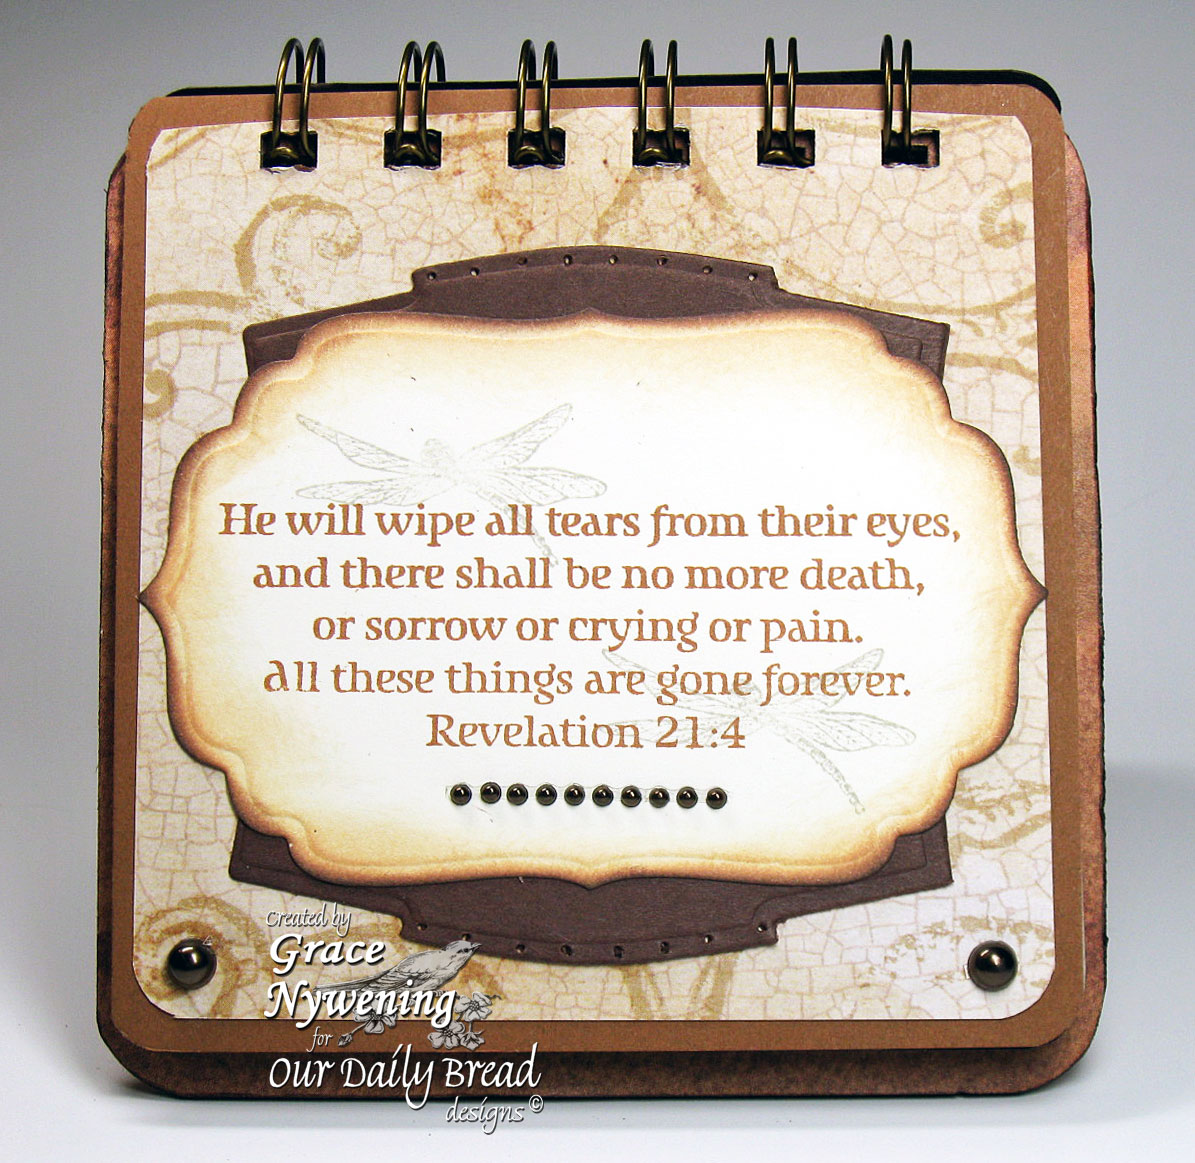 He will wipe all tears from their eyes,
and there shall be no more death,
or sorrow or crying or pain.
All these things are gone forever.
Revelation 21:4
Created by
Grace
Nywening
for
Our Daily Bread
designs©